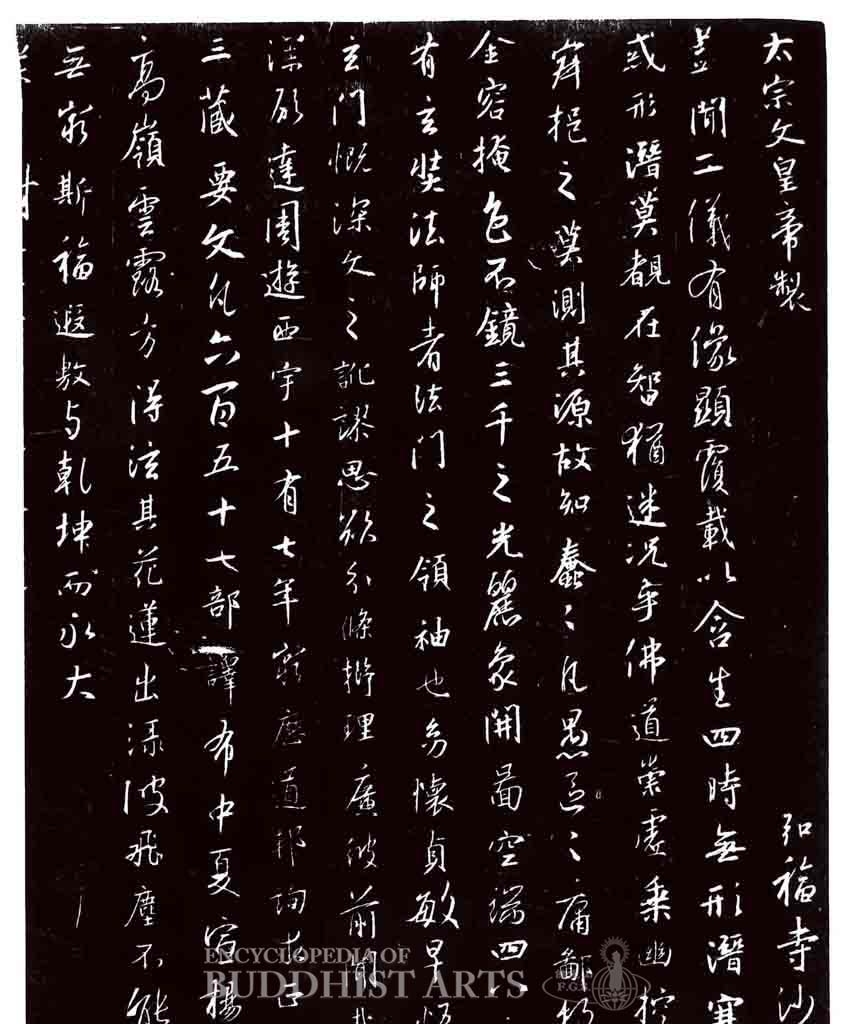 太宗文皇帝製 弘福寺沙
蓋聞二儀有像顯覆載以含生四時無形潛寒
或形潛莫覩在智猶迷況乎佛道崇虛乘幽控
寂挹之莫測其源故知蠢〻凡愚區〻庸鄙投
金容掩色不鏡三千之光麗象開圖空端四八
有玄奘法師者法門之領袖也幼懷貞敏早悟
玄門慨深文之訛謬思欲分條析理廣彼前聞截
深願達周遊西宇十有七年窮歷道邦詢求正
三藏要文凡六百五十七部譯布中夏宣揚
高嶺雲露方得泫其花蓮出淥波飛塵不能
無窮斯福遐敷与乾坤而永大
ENCYCLOPEDIA OF
BUDDHIST ARTS
F.G.S.